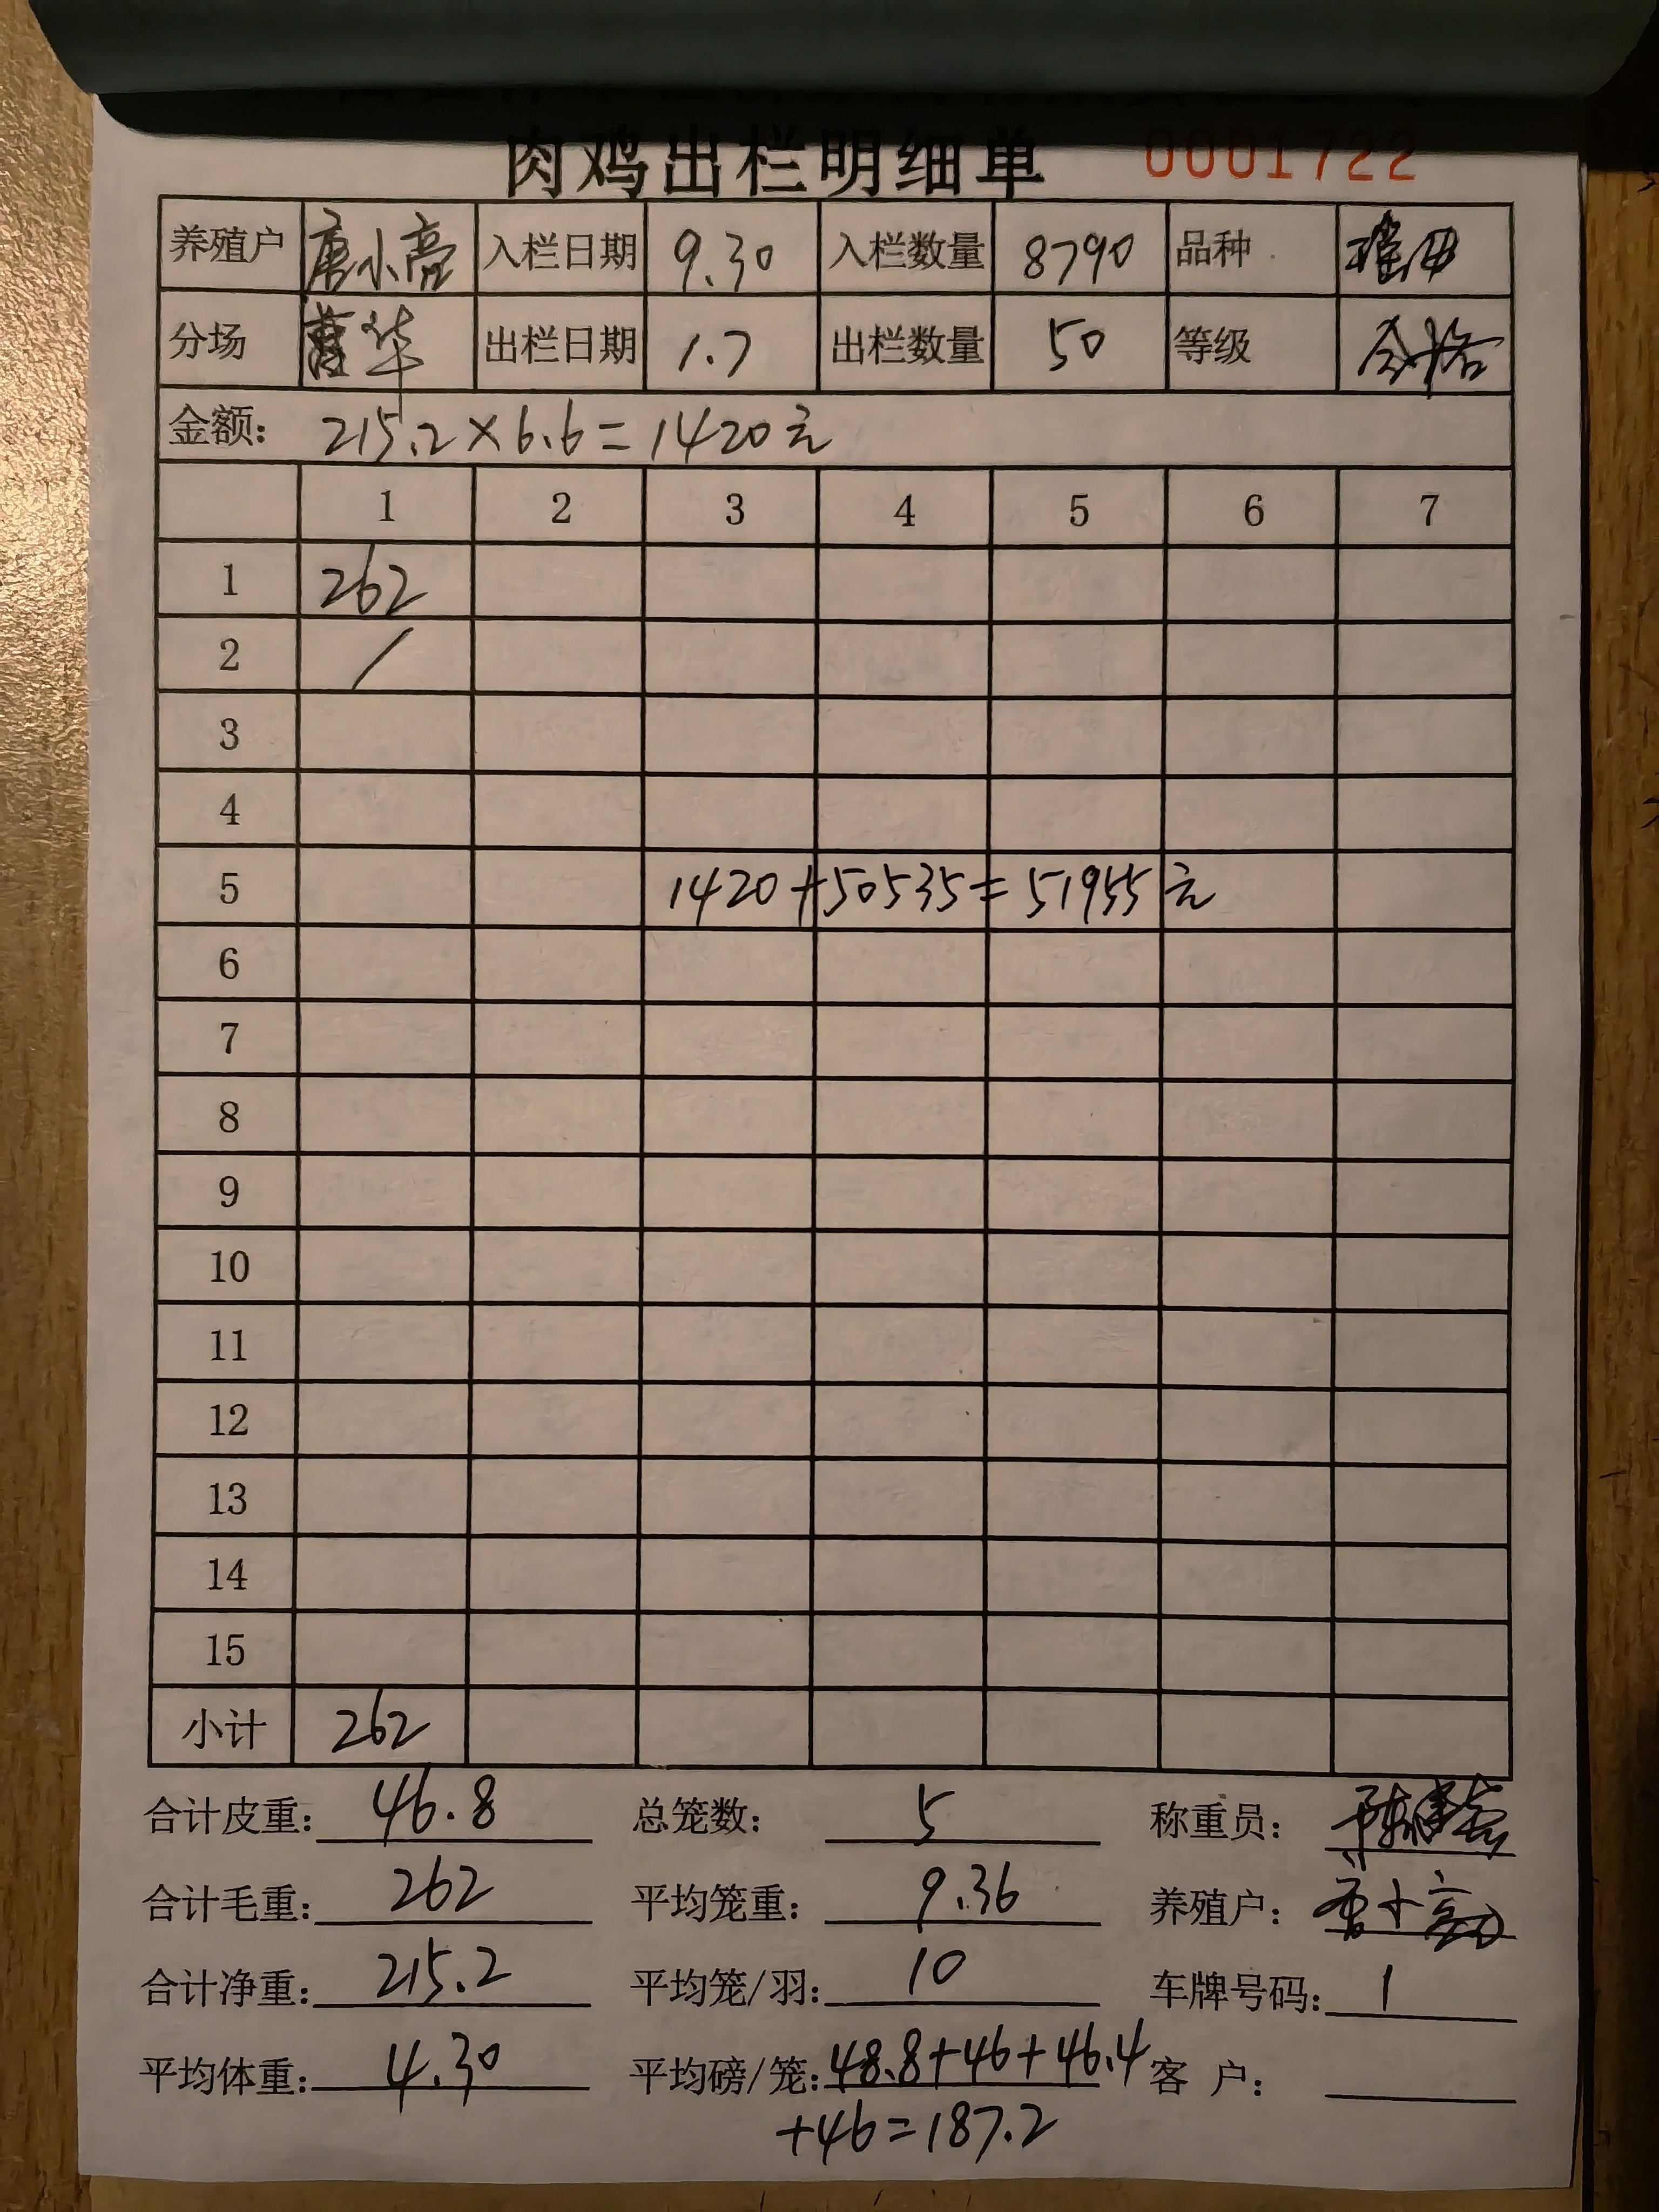 肉鸡出栏明细单 0001722
养殖户 唐小亮 入栏日期 9.30 入栏数量 8790 品种
分场 华 出栏日期 1.7 出栏数量 50 等级 合格
金额: 215.2×6.6=1420元
1 2 3 4 5 6 7
1 262
2 /
3
4
5 1420+50535=51955元
6
7
8
9
10
11
12
13
14
15
小计 262
合计皮重: 46.8 总笼数: 5 称重员:
合计毛重: 262 平均笼重: 9.36 养殖户: 唐小亮
合计净重: 215.2 平均笼/羽: 10 车牌号码: 1
平均体重: 4.30 平均磅/笼: 48.8+46+46.4 客 户:
+46=187.2